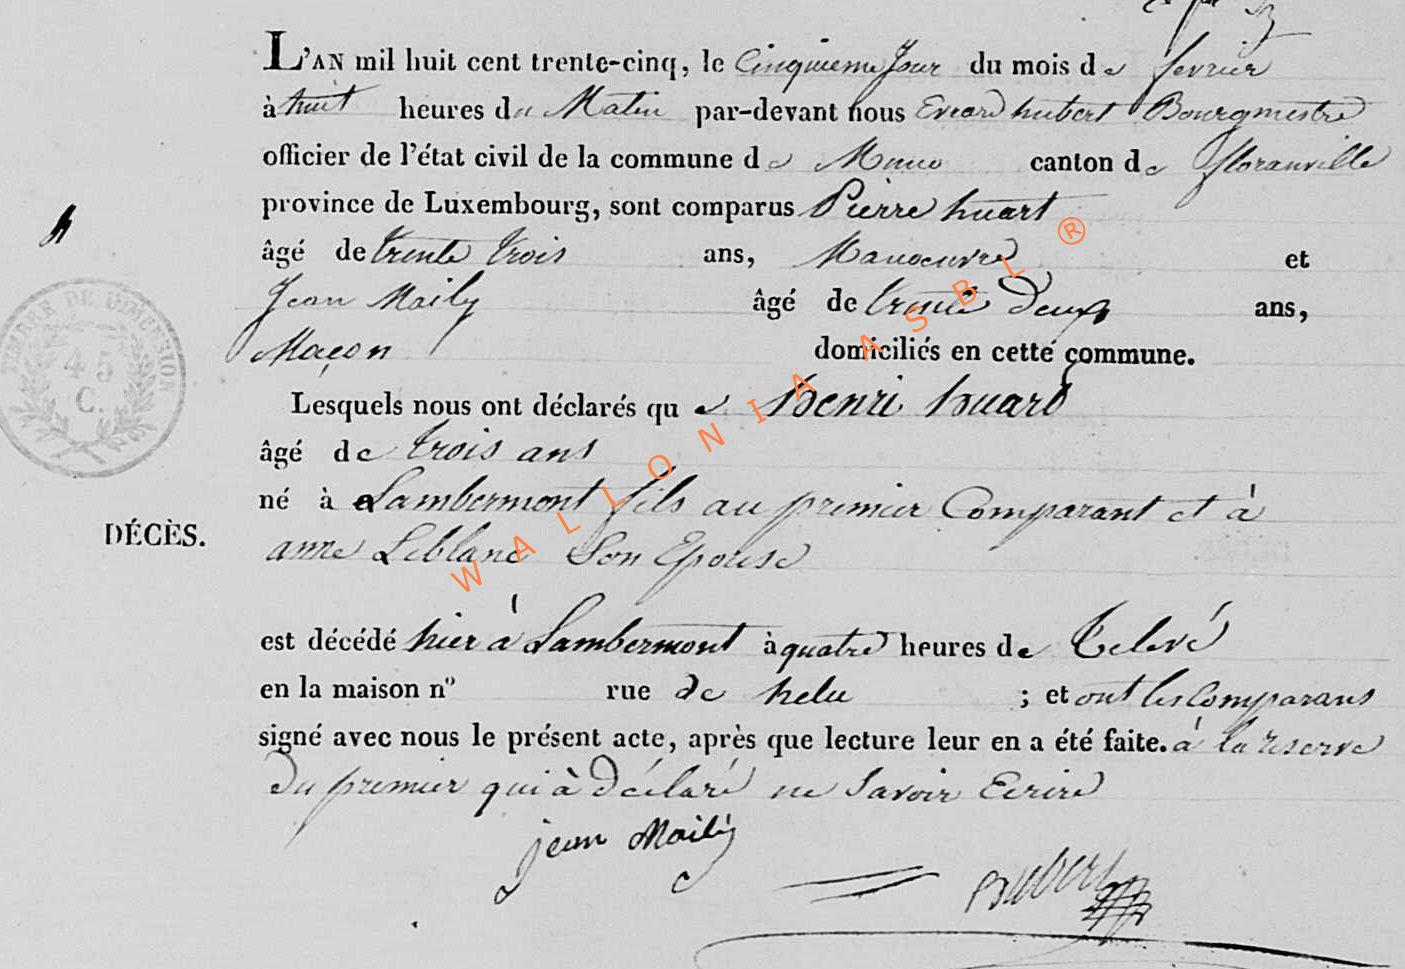 L'AN mil huit cent trente-cinq, le Cinquieme Jour du mois de fevrier
à huit heures du Matin par-devant nous Evrard hubert Bourgmestre
officier de l'état civil de la commune de Muno canton de floranville
province de Luxembourg, sont comparus Pierre huart
âgé de trente trois ans, Manoeuvre et
Jean Maily âgé de trente deux ans,
Maçon domiciliés en cette commune.
Lesquels nous ont déclarés que henri huard
âgé de trois ans
né à Lambermont fils au premier Comparant et à
DÉCÈS.
anne Leblanc Son Epouse
est décédé hier à Lambermont à quatre heures de Relevé
en la maison nº rue de helu ; et ont les Comparans
signé avec nous le présent acte, après que lecture leur en a été faite. à la reserve
du premier qui à déclaré ne Savoir Ecrire
jean Maily
TIMBRE DE DIMENSION
45
C.
WALLONIA ASBL ®